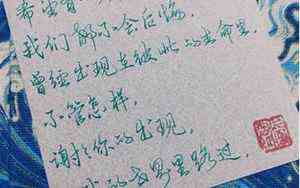 希望有
我们都不会后悔,
曾经出现在彼此的生命里.
不管怎样,
谢谢你的出现,
我的世界里路过.